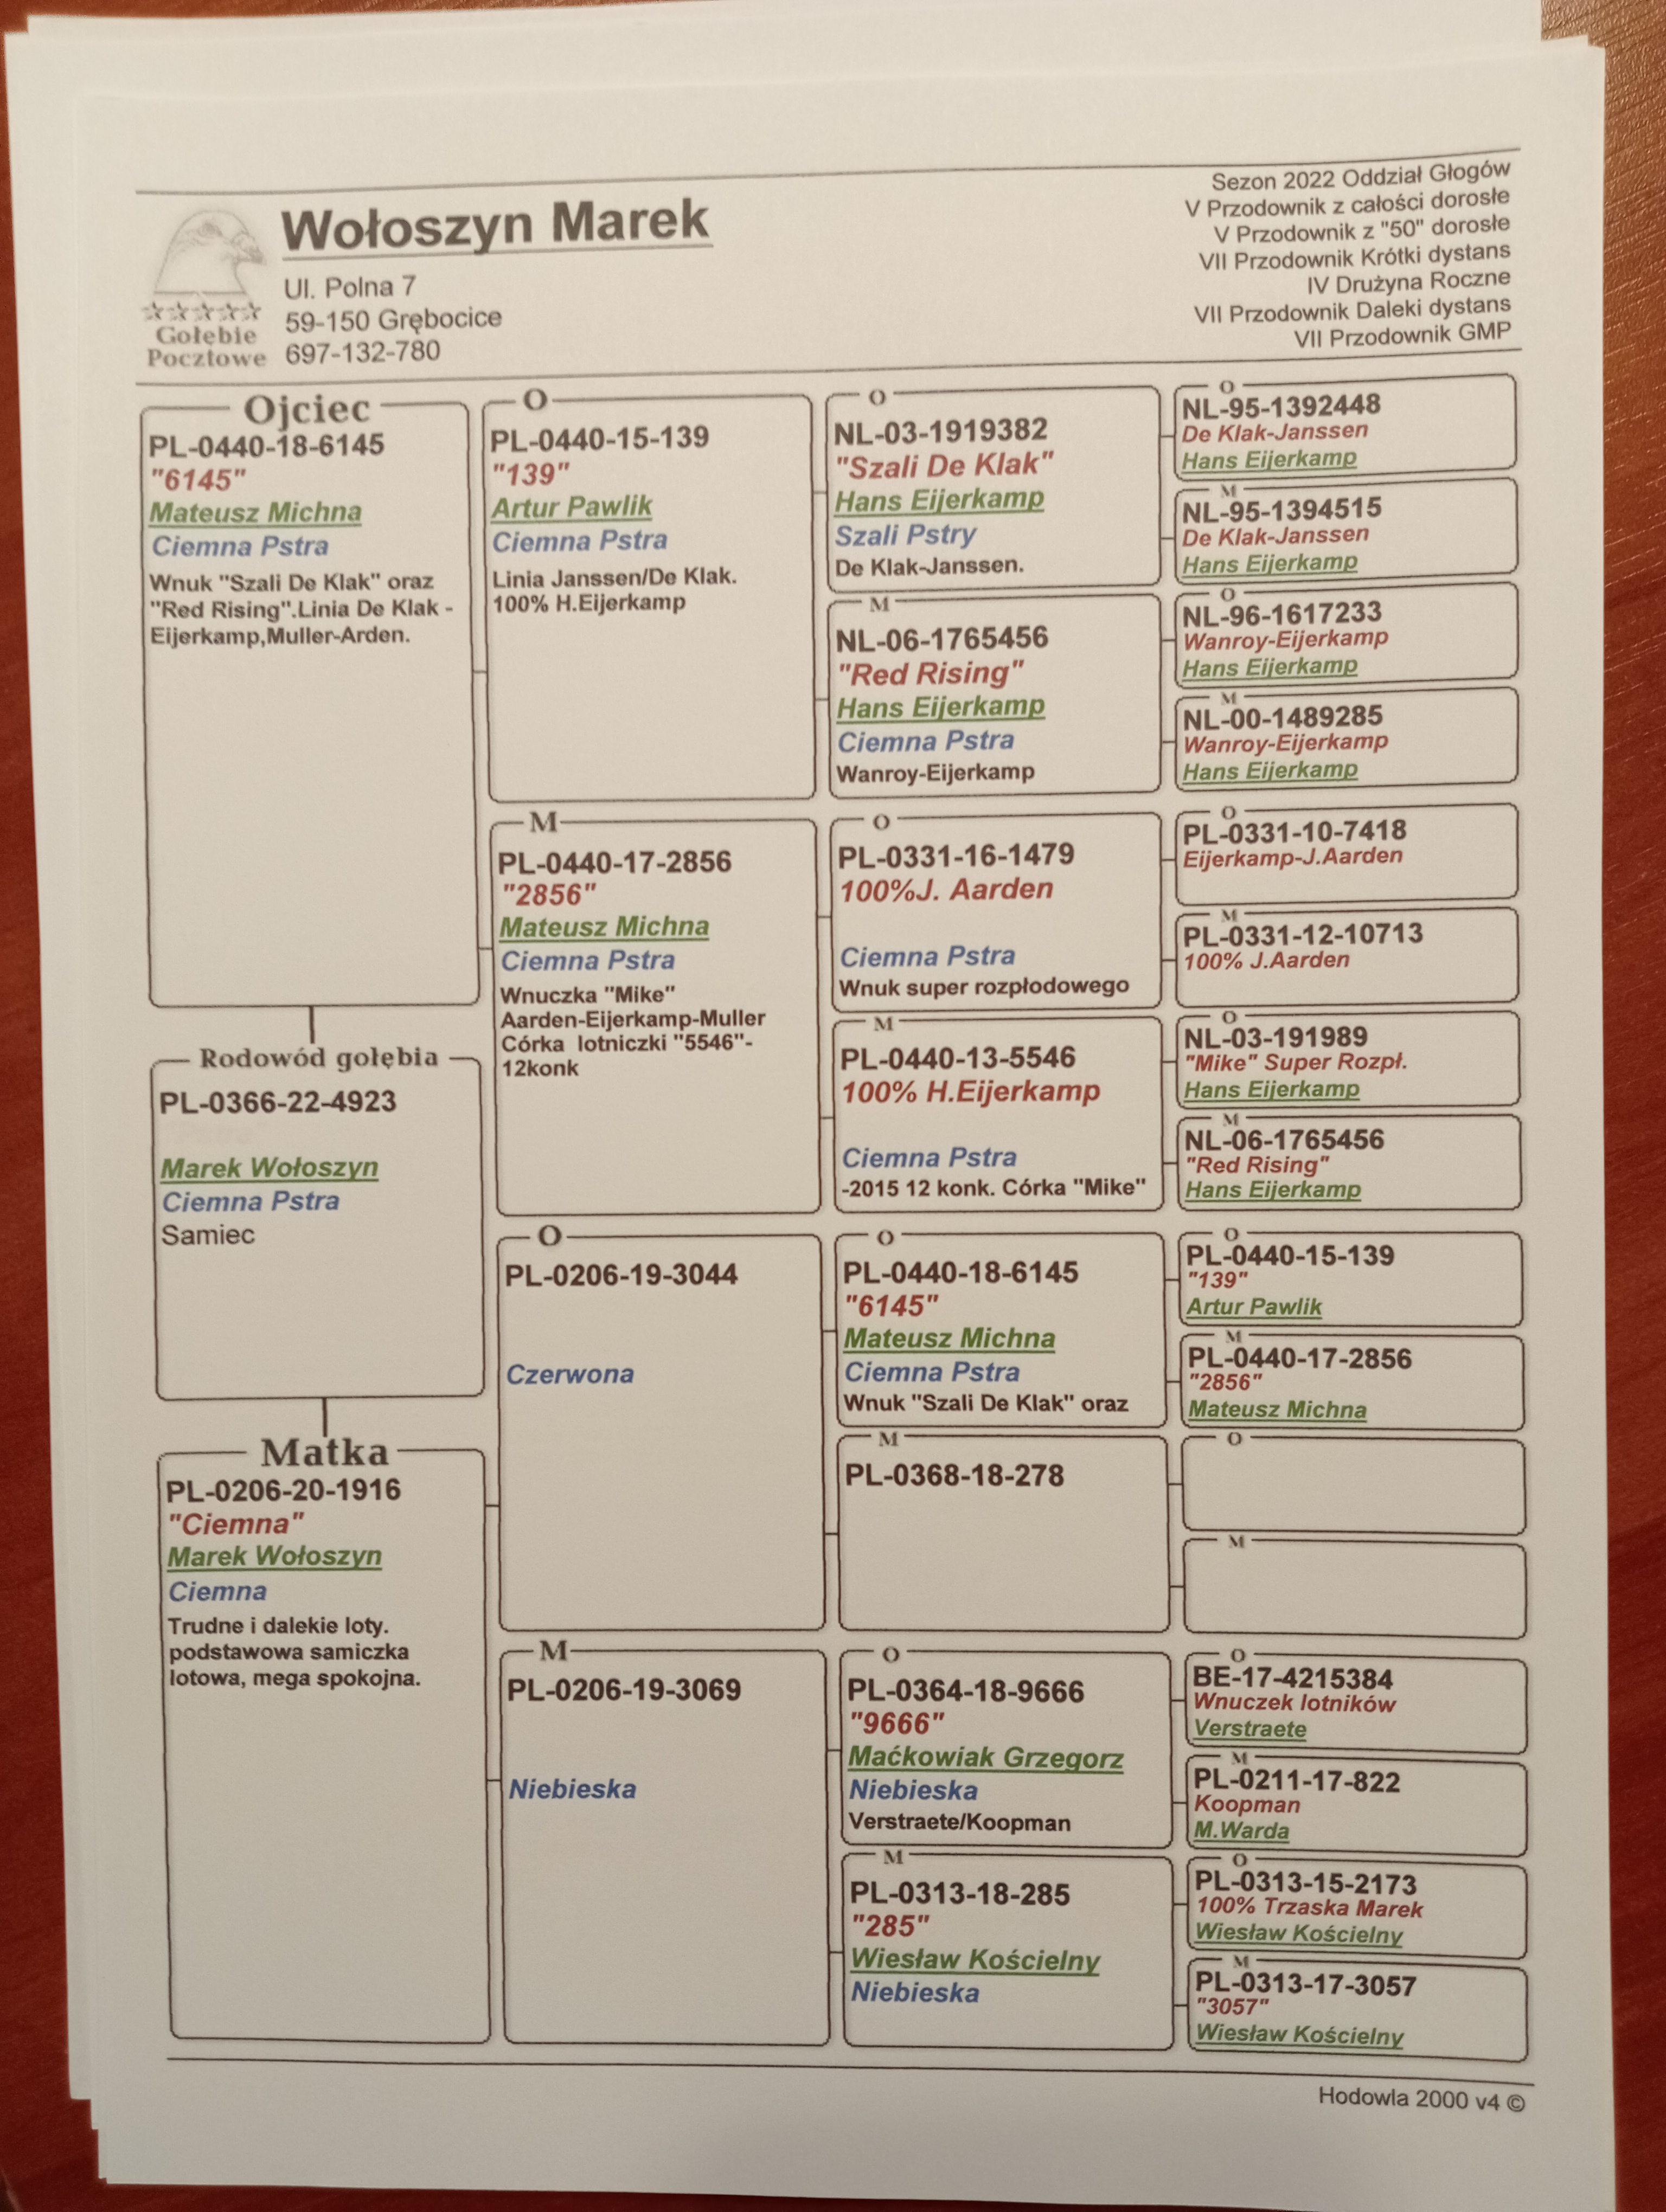 Wołoszyn Marek
Ul. Polna 7
59-150 Grębocice
697-132-780
Gołębie
Pocztowe
Sezon 2022 Oddział Głogów
V Przodownik z całości dorosłe
V Przodownik z "50" dorosłe
VII Przodownik Krótki dystans
IV Drużyna Roczne
VII Przodownik Daleki dystans
VII Przodownik GMP
Ojciec
PL-0440-18-6145
"6145"
Mateusz Michna
Ciemna Pstra
Wnuk "Szali De Klak" oraz
"Red Rising".Linia De Klak -
Eijerkamp,Muller-Arden.
Rodowód gołębia
PL-0366-22-4923
Marek Wołoszyn
Ciemna Pstra
Samiec
Matka
PL-0206-20-1916
"Ciemna"
Marek Wołoszyn
Ciemna
Trudne i dalekie loty.
podstawowa samiczka
lotowa, mega spokojna.
O
PL-0440-15-139
"139"
Artur Pawlik
Ciemna Pstra
Linia Janssen/De Klak.
100% H.Eijerkamp
M
PL-0440-17-2856
"2856"
Mateusz Michna
Ciemna Pstra
Wnuczka "Mike"
Aarden-Eijerkamp-Muller
Córka lotniczki "5546"-
12konk
O
PL-0206-19-3044
Czerwona
M
PL-0206-19-3069
Niebieska
O
NL-03-1919382
"Szali De Klak"
Hans Eijerkamp
Szali Pstry
De Klak-Janssen.
M
NL-06-1765456
"Red Rising"
Hans Eijerkamp
Ciemna Pstra
Wanroy-Eijerkamp
O
PL-0331-16-1479
100%J. Aarden
Ciemna Pstra
Wnuk super rozpłodowego
M
PL-0440-13-5546
100% H.Eijerkamp
Ciemna Pstra
-2015 12 konk. Córka "Mike"
O
PL-0440-18-6145
"6145"
Mateusz Michna
Ciemna Pstra
Wnuk "Szali De Klak" oraz
M
PL-0368-18-278
O
PL-0364-18-9666
"9666"
Maćkowiak Grzegorz
Niebieska
Verstraete/Koopman
M
PL-0313-18-285
"285"
Wiesław Kościelny
Niebieska
O
NL-95-1392448
De Klak-Janssen
Hans Eijerkamp
M
NL-95-1394515
De Klak-Janssen
Hans Eijerkamp
O
NL-96-1617233
Wanroy-Eijerkamp
Hans Eijerkamp
M
NL-00-1489285
Wanroy-Eijerkamp
Hans Eijerkamp
O
PL-0331-10-7418
Eijerkamp-J.Aarden
M
PL-0331-12-10713
100% J.Aarden
O
NL-03-191989
"Mike" Super Rozpł.
Hans Eijerkamp
M
NL-06-1765456
"Red Rising"
Hans Eijerkamp
O
PL-0440-15-139
"139"
Artur Pawlik
M
PL-0440-17-2856
"2856"
Mateusz Michna
O
M
O
BE-17-4215384
Wnuczek lotników
Verstraete
M
PL-0211-17-822
Koopman
M.Warda
O
PL-0313-15-2173
100% Trzaska Marek
Wiesław Kościelny
M
PL-0313-17-3057
"3057"
Wiesław Kościelny
Hodowla 2000 v4 ©